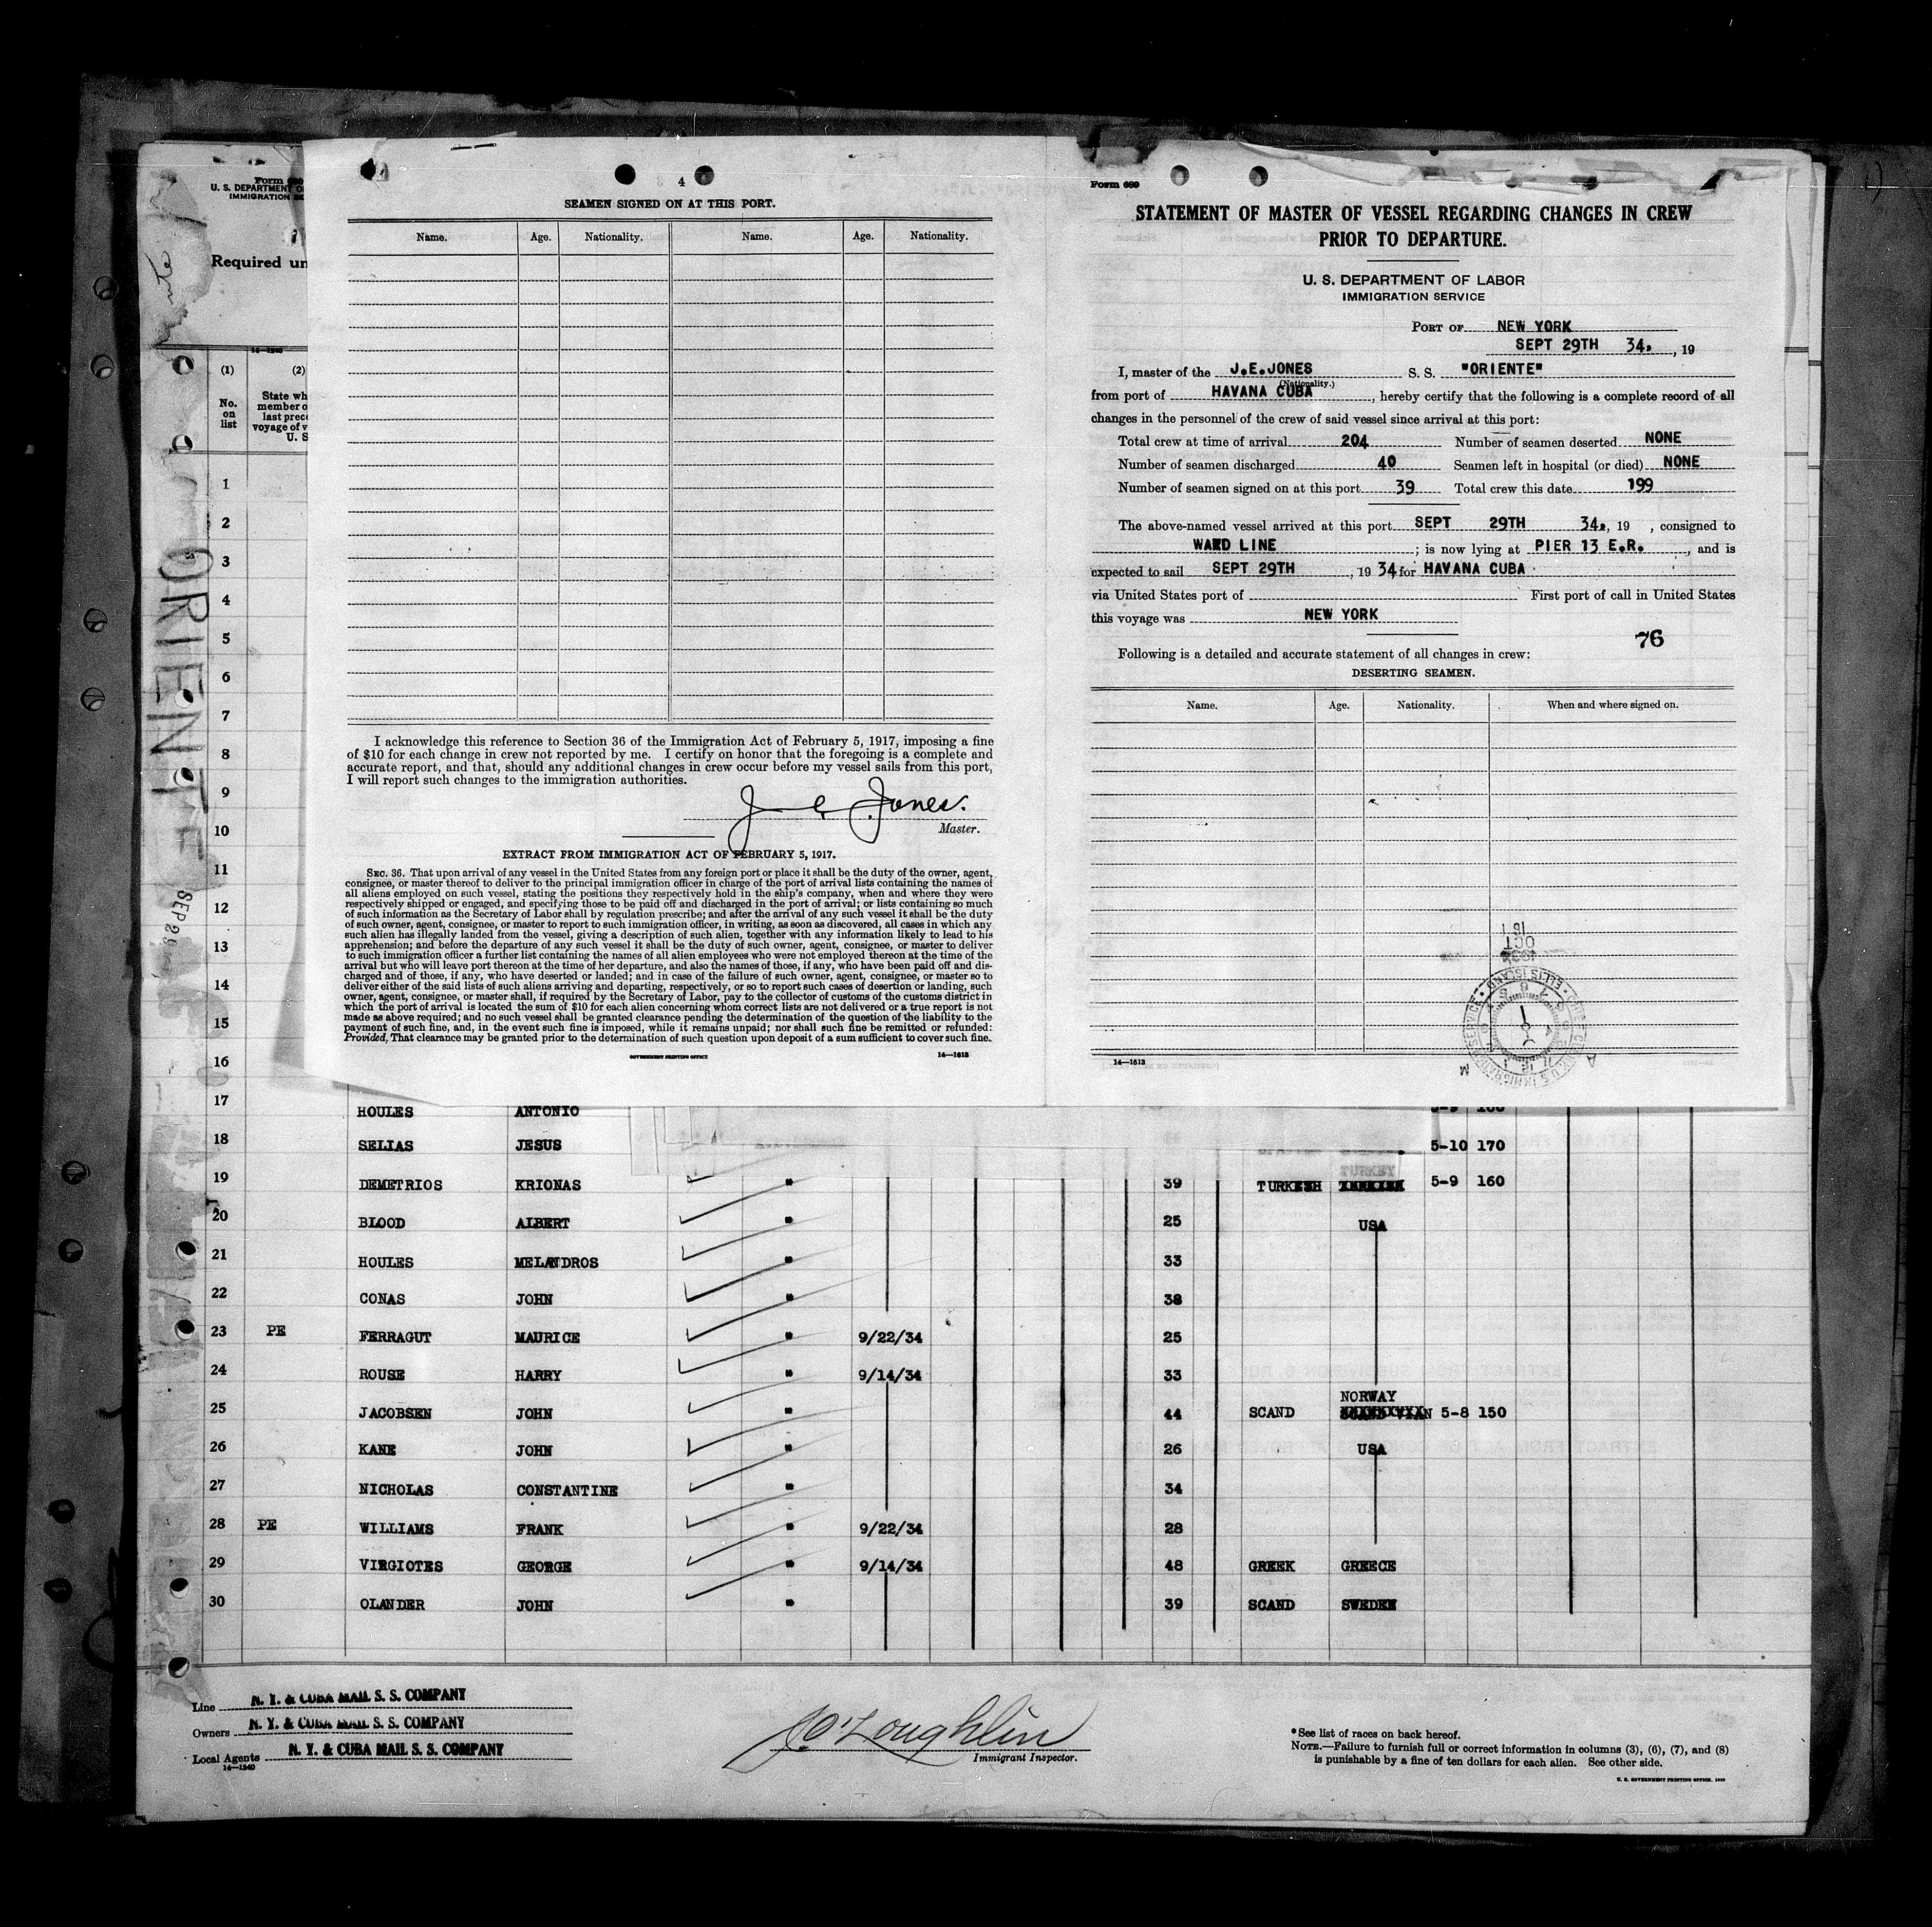 Form 680
U. S. DEPARTMENT O
IMMIGRATION SE
Required un
14—1240
(1)
(2)
No.
on
list
State wh
member o
last prec
voyage of v
U. S
ORIENTE
SEP 29
4
SEAMEN SIGNED ON AT THIS PORT.
Name. Age. Nationality. Name. Age. Nationality.
I acknowledge this reference to Section 36 of the Immigration Act of February 5, 1917, imposing a fine
of $10 for each change in crew not reported by me. I certify on honor that the foregoing is a complete and
accurate report, and that, should any additional changes in crew occur before my vessel sails from this port,
I will report such changes to the immigration authorities.
J e Jones.
Master.
EXTRACT FROM IMMIGRATION ACT OF FEBRUARY 5, 1917.
SEC. 36. That upon arrival of any vessel in the United States from any foreign port or place it shall be the duty of the owner, agent,
consignee, or master thereof to deliver to the principal immigration officer in charge of the port of arrival lists containing the names of
all aliens employed on such vessel, stating the positions they respectively hold in the ship's company, when and where they were
respectively shipped or engaged, and specifying those to be paid off and discharged in the port of arrival; or lists containing so much
of such information as the Secretary of Labor shall by regulation prescribe; and after the arrival of any such vessel it shall be the duty
of such owner, agent, consignee, or master to report to such immigration officer, in writing, as soon as discovered, all cases in which any
such alien has illegally landed from the vessel, giving a description of such alien, together with any information likely to lead to his
apprehension; and before the departure of any such vessel it shall be the duty of such owner, agent, consignee, or master to deliver
to such immigration officer a further list containing the names of all alien employees who were not employed thereon at the time of the
arrival but who will leave port thereon at the time of her departure, and also the names of those, if any, who have been paid off and dis-
charged and of those, if any, who have deserted or landed; and in case of the failure of such owner, agent, consignee, or master so to
deliver either of the said lists of such aliens arriving and departing, respectively, or so to report such cases of desertion or landing, such
owner, agent, consignee, or master shall, if required by the Secretary of Labor, pay to the collector of customs of the customs district in
which the port of arrival is located the sum of $10 for each alien concerning whom correct lists are not delivered or a true report is not
made as above required; and no such vessel shall be granted clearance pending the determination of the question of the liability to the
payment of such fine, and, in the event such fine is imposed, while it remains unpaid; nor shall such fine be remitted or refunded:
Provided, That clearance may be granted prior to the determination of such question upon deposit of a sum sufficient to cover such fine.
GOVERNMENT PRINTING OFFICE 14—1613
Form 689
STATEMENT OF MASTER OF VESSEL REGARDING CHANGES IN CREW
PRIOR TO DEPARTURE.
U. S. DEPARTMENT OF LABOR
IMMIGRATION SERVICE
PORT OF NEW YORK
SEPT 29TH 34. , 19
I, master of the J.E.JONES S. S. "ORIENTE"
(Nationality.)
from port of HAVANA CUBA , hereby certify that the following is a complete record of all
changes in the personnel of the crew of said vessel since arrival at this port:
Total crew at time of arrival 204 Number of seamen deserted NONE
Number of seamen discharged 40 Seamen left in hospital (or died) NONE
Number of seamen signed on at this port 39 Total crew this date 199
The above-named vessel arrived at this port SEPT 29TH 34. , 19 , consigned to
WARD LINE ; is now lying at PIER 13 E.R. , and is
expected to sail SEPT 29TH , 19 34 for HAVANA CUBA
via United States port of First port of call in United States
this voyage was NEW YORK
76
Following is a detailed and accurate statement of all changes in crew:
DESERTING SEAMEN.
Name. Age. Nationality. When and where signed on.
1934
OCT
ELLIS ISLAND
14—1613
1
2
3
4
5
6
7
8
9
10
11
12
13
14
15
16
17 HOULES ANTONIO
18 SELIAS JESUS 5-10 170
19 DEMETRIOS KRIONAS " 39 TURKISH TURKEY 5-9 160
20 BLOOD ALBERT " 25 USA
21 HOULES MELANDROS " 33
22 CONAS JOHN " 38
23 PE FERRAGUT MAURICE " 9/22/34 25
24 ROUSE HARRY " 9/14/34 33
25 JACOBSEN JOHN " 44 SCAND NORWAY 5-8 150
26 KANE JOHN " 26 USA
27 NICHOLAS CONSTANTINE " 34
28 PE WILLIAMS FRANK " 9/22/34 28
29 VIRGIOTES GEORGE " 9/14/34 48 GREEK GREECE
30 OLANDER JOHN " 39 SCAND SWEDEN
Line N. Y. & CUBA MAIL S. S. COMPANY
Owners N. Y. & CUBA MAIL S. S. COMPANY
Local Agents N. Y. & CUBA MAIL S. S. COMPANY
14—1240
O'Loughlin
Immigrant Inspector.
*See list of races on back hereof.
NOTE.—Failure to furnish full or correct information in columns (3), (6), (7), and (8)
is punishable by a fine of ten dollars for each alien. See other side.
U. S. GOVERNMENT PRINTING OFFICE